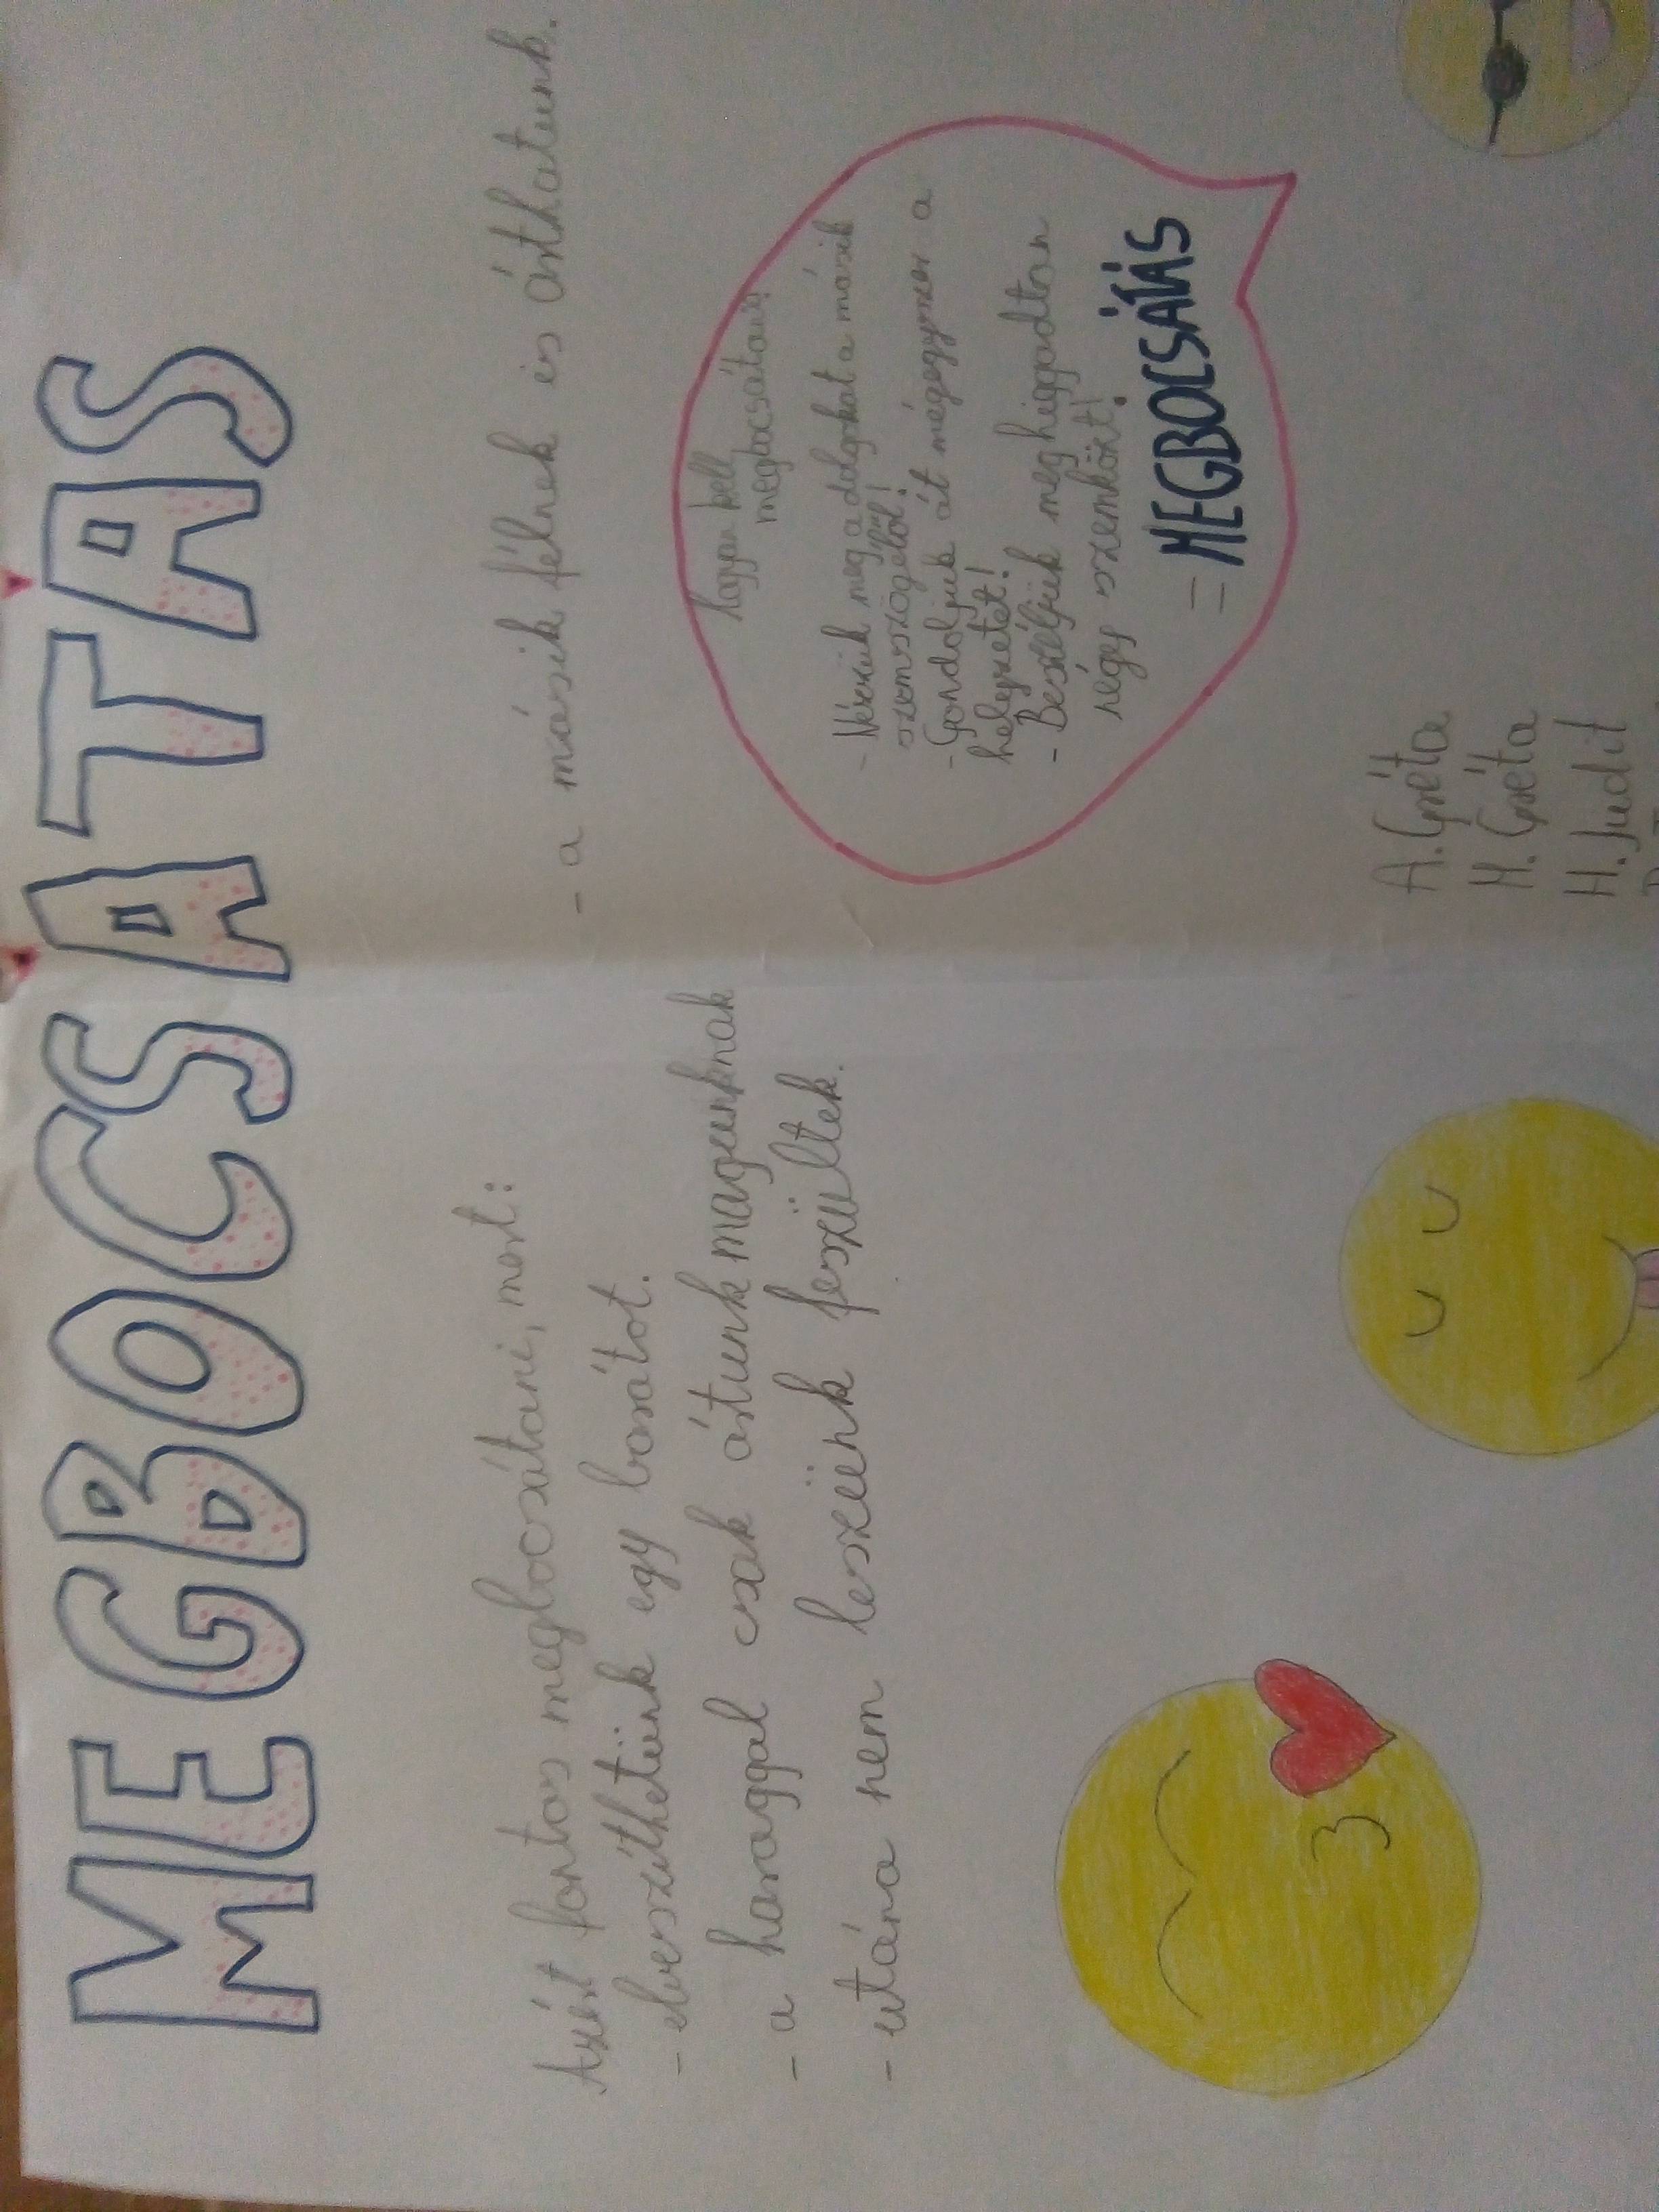 MEGBOCSATAS
Azért fontos megbocsátani, mert:
- elveszíthetünk egy barátot.
- a haraggal csak ártunk magunknak
- utána nem leszünk feszültek.
- a másik félnek is árthatunk.
hogyan kell
megbocsátani?
- Nézzük meg a dolgokat a másik
szemszögéből!
- Gondoljuk át mégegyszer a
helyzetet!
- Beszéljük meg higgadtan
négy szemközt!
= MEGBOCSÁTÁS
A. Gréta
M. Gréta
H. Judit